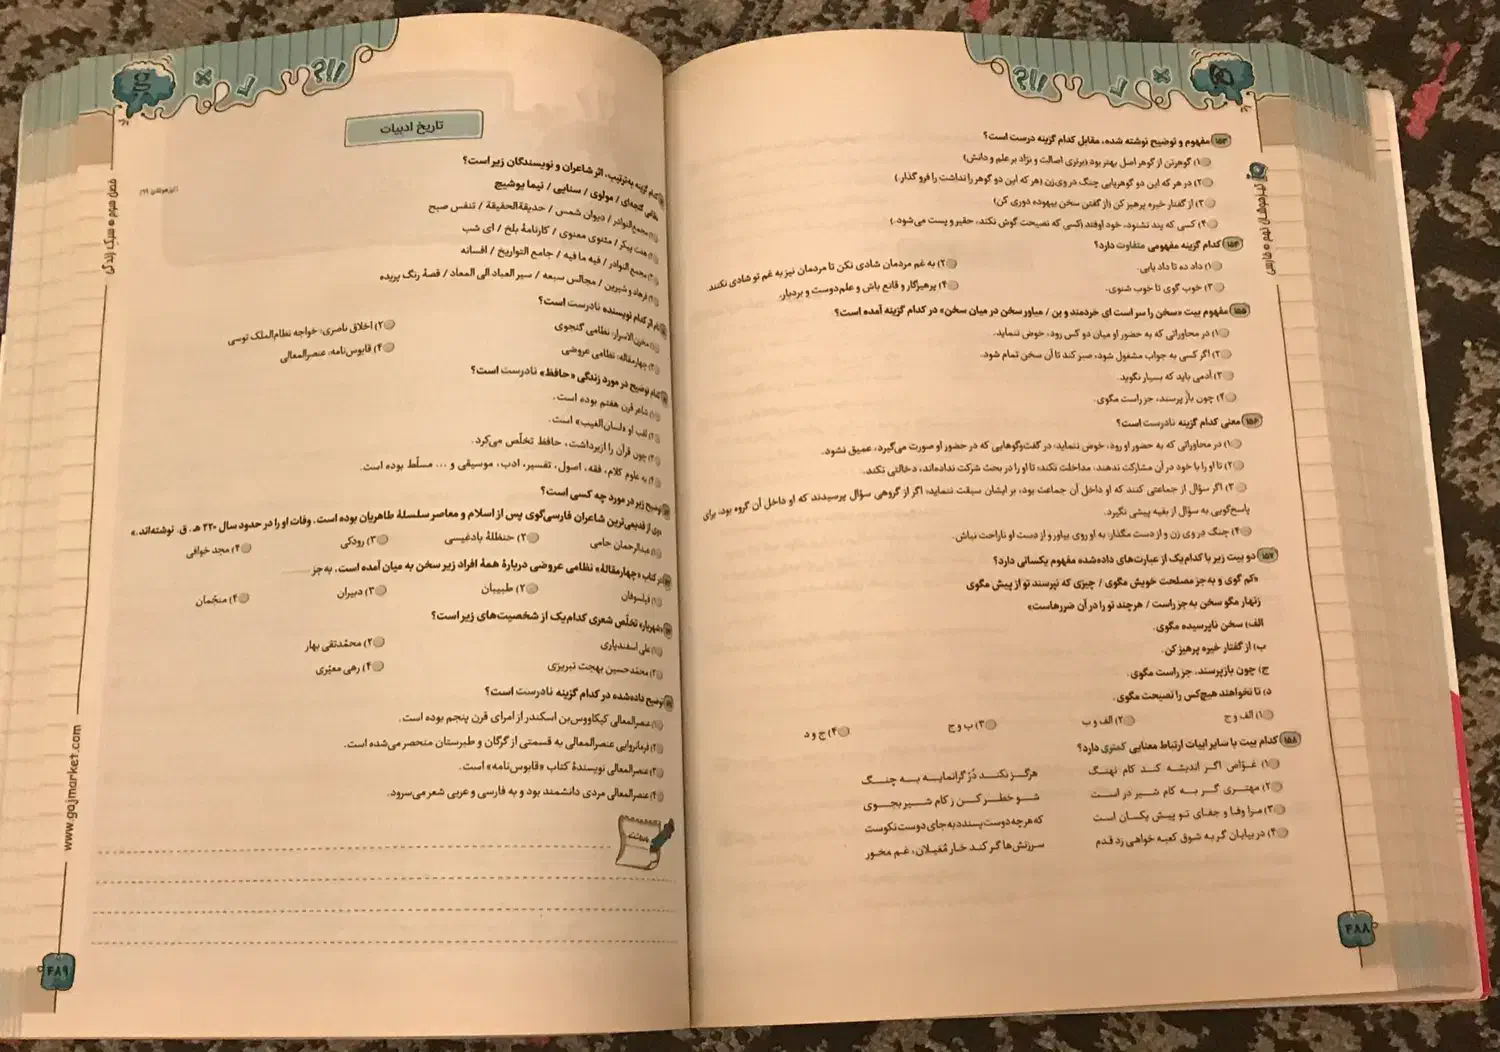 ۱۵۳ مفهوم و توضیح نوشته شده، مقابل کدام گزینه درست است؟
۱) گوهرتن از گوهر اصل بهتر بود (برتری اصالت و نژاد بر علم و دانش)
۲) در هر که این دو گوهر یابی چنگ در وی زن (هر که این دو گوهر را نداشت را فرو گذار.)
۳) از گفتار خیره پرهیز کن (از گفتن سخن بیهوده دوری کن)
۴) کسی که پند نشنود، خود اوفتد (کسی که نصیحت گوش نکند، حقیر و پست می‌شود.)
۱۵۴ کدام گزینه مفهومی متفاوت دارد؟
۱) داد ده تا داد یابی.
۲) به غم مردمان شادی نکن تا مردمان نیز به غم تو شادی نکنند.
۳) خوب گوی تا خوب شنوی.
۴) پرهیزگار و قانع باش و علم‌دوست و بردبار.
۱۵۵ مفهوم بیت «سخن را سر است ای خردمند و بن / میاور سخن در میان سخن» در کدام گزینه آمده است؟
۱) در محاوراتی که به حضور او میان دو کس رود، خوض ننماید.
۲) اگر کسی به جواب مشغول شود، صبر کند تا آن سخن تمام شود.
۳) آدمی باید که بسیار نگوید.
۴) چون باز پرسند، جز راست مگوی.
۱۵۶ معنی کدام گزینه نادرست است؟
۱) در محاوراتی که به حضور او رود، خوض ننماید: در گفت‌وگوهایی که در حضور او صورت می‌گیرد، عمیق نشود.
۲) تا او را با خود در آن مشارکت ندهند، مداخلت نکند: تا او را در بحث شرکت نداده‌اند، دخالتی نکند.
۳) اگر سؤال از جماعتی کنند که او داخل آن جماعت بود، بر ایشان سبقت ننماید: اگر از گروهی سؤال پرسیدند که او داخل آن گروه بود، برای
پاسخ‌گویی به سؤال از بقیه پیشی نگیرد.
۴) چنگ در وی زن و از دست مگذار: به او روی بیاور و از دست او ناراحت نباش.
۱۵۷ دو بیت زیر با کدام‌یک از عبارت‌های داده‌شده مفهوم یکسانی دارد؟
«کم گوی و به‌جز مصلحت خویش مگوی / چیزی که نپرسند تو از پیش مگوی
زنهار مگو سخن به‌جز راست / هرچند تو را در آن ضررهاست»
الف) سخن ناپرسیده مگوی.
ب) از گفتار خیره پرهیز کن.
ج) چون بازپرسند، جز راست مگوی.
د) تا نخواهند هیچ‌کس را نصیحت مگوی.
۱) الف و ج ۲) الف و ب ۳) ب و ج ۴) ج و د
۱۵۸ کدام بیت با سایر ابیات ارتباط معنایی کمتری دارد؟
۱) غوّاص اگر اندیشه کند کام نهنگ هرگز نکند دُرّ گرانمایه به چنگ
۲) مهتری گر به کام شیر در است شو خطر کن ز کام شیر بجوی
۳) مرا وفا و جفای تو پیش یکسان است که هرچه دوست پسندد به‌جای دوست نکوست
۴) در بیابان گر به شوق کعبه خواهی زد قدم سرزنش‌ها گر کند خار مُغیلان، غم مخور
۴۸۸
تاریخ ادبیات
کدام گزینه به‌ترتیب، اثر شاعران و نویسندگان زیر است؟
نظامی گنجه‌ای / مولوی / سنایی / نیما یوشیج
۱) مجمع‌النوادر / دیوان شمس / حدیقةالحقیقة / تنفس صبح
۲) هفت پیکر / مثنوی معنوی / کارنامهٔ بلخ / ای شب
۳) مجمع النوادر / فیه ما فیه / جامع التواریخ / افسانه
۴) فرهاد و شیرین / مجالس سبعه / سیر العباد الی المعاد / قصهٔ رنگ پریده
نام اثر کدام نویسنده نادرست است؟
۱) مخزن‌الاسرار: نظامی گنجوی ۲) اخلاق ناصری: خواجه نظام‌الملک توسی
۳) چهارمقاله: نظامی عروضی ۴) قابوس‌نامه: عنصرالمعالی
کدام توضیح در مورد زندگی «حافظ» نادرست است؟
۱) شاعر قرن هفتم بوده است.
۲) لقب او «لسان‌الغیب» است.
۳) چون قرآن را ازبرداشت، حافظ تخلّص می‌کرد.
۴) به علوم کلام، فقه، اصول، تفسیر، ادب، موسیقی و ... مسلّط بوده است.
توضیح زیر در مورد چه کسی است؟
«وی از قدیمی‌ترین شاعران فارسی‌گوی پس از اسلام و معاصر سلسلهٔ طاهریان بوده است. وفات او را در حدود سال ۲۲۰ هـ. ق. نوشته‌اند.»
۱) عبدالرحمان جامی ۲) حنظلهٔ بادغیسی ۳) رودکی ۴) مجد خوافی
در کتاب «چهارمقالهٔ» نظامی عروضی دربارهٔ همهٔ افراد زیر سخن به میان آمده است، به‌جز
۱) فیلسوفان ۲) طبیبان ۳) دبیران ۴) منجّمان
«شهریار» تخلّص شعری کدام‌یک از شخصیت‌های زیر است؟
۱) علی اسفندیاری ۲) محمّدتقی بهار
۳) محمدحسین بهجت تبریزی ۴) رهی معیّری
توضیح داده‌شده در کدام گزینه نادرست است؟
۱) عنصرالمعالی کیکاووس‌بن اسکندر از امرای قرن پنجم بوده است.
۲) فرمانروایی عنصرالمعالی به قسمتی از گرگان و طبرستان منحصر می‌شده است.
۳) عنصرالمعالی نویسندهٔ کتاب «قابوس‌نامه» است.
۴) عنصرالمعالی مردی دانشمند بود و به فارسی و عربی شعر می‌سرود.
یادداشت
فصل سوم سبک زندگی
www.gajmarket.com
۴۸۹